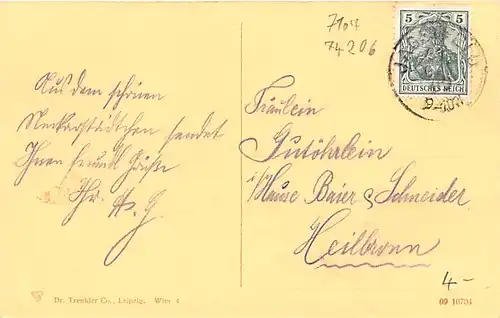 7104
74206
5 5
DEUTSCHES REICH
Aus dem schönen
Neckarstädtchen sendet
Ihnen freundl. Grüße
Ihr
Fräulein
Gutöhrlein
i/Hause Baier & Schneider
Heilbronn
4-
Dr. Trenkler Co., Leipzig. Wim 4
09 10704